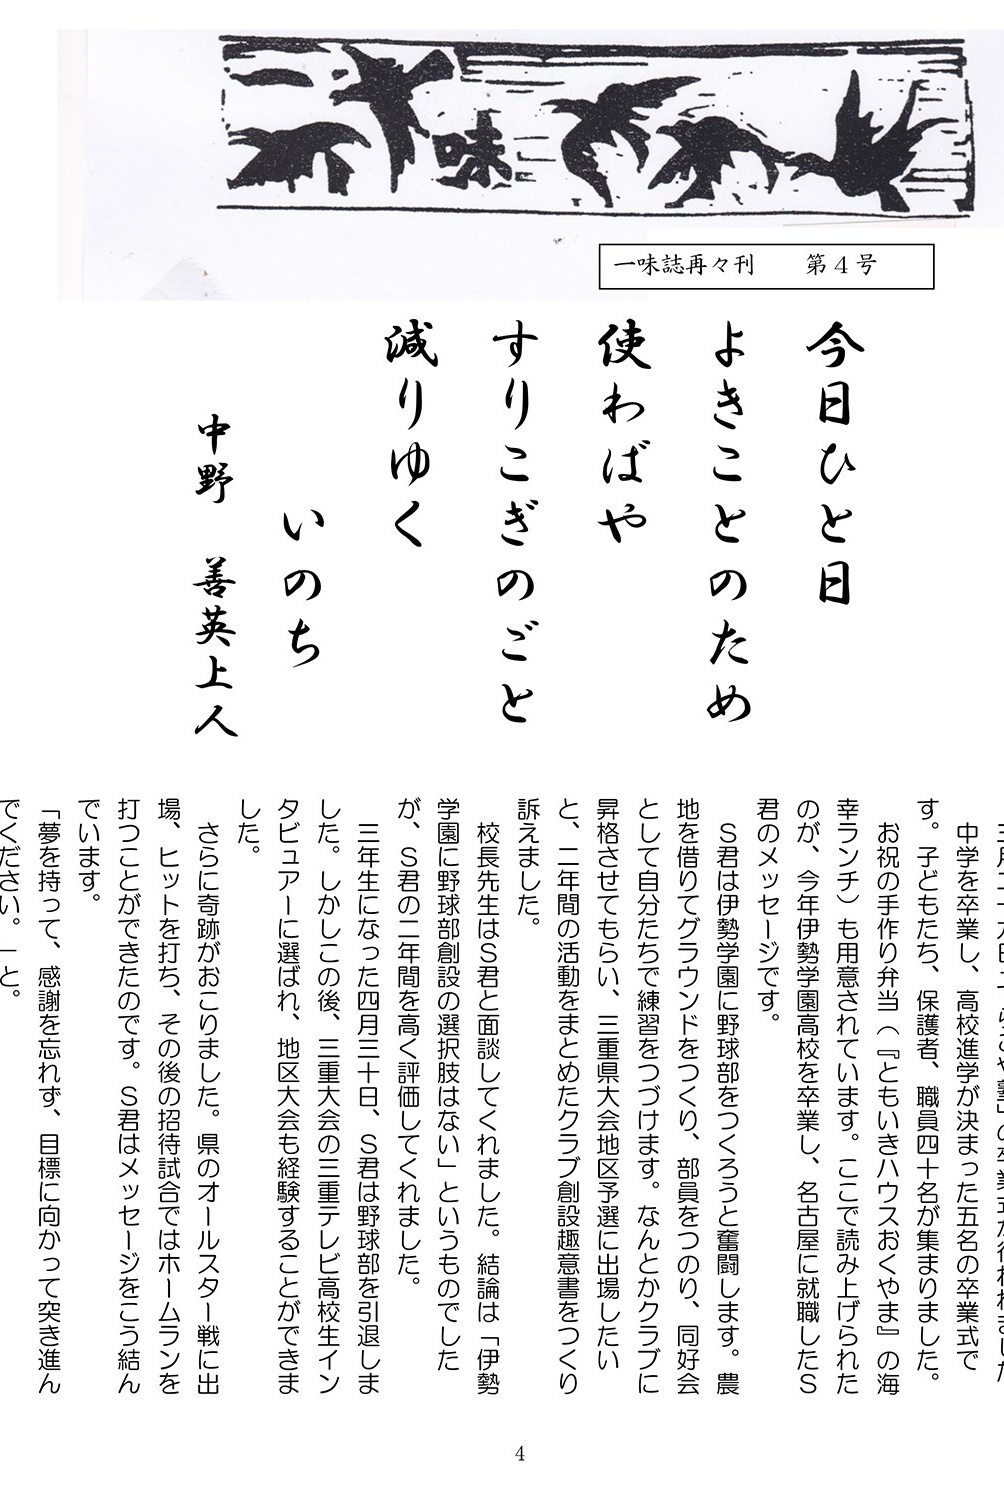 一味
一味誌再々刊　第４号
今日ひと日
よきことのため
使わばや
すりこぎのごと
減りゆく
いのち
中野　善英上人
中学を卒業し、高校進学が決まった五名の卒業式で
す。子どもたち、保護者、職員四十名が集まりました。
お祝の手作り弁当（『ともいきハウスおくやま』の海
幸ランチ）も用意されています。ここで読み上げられた
のが、今年伊勢学園高校を卒業し、名古屋に就職したＳ
君のメッセージです。
Ｓ君は伊勢学園に野球部をつくろうと奮闘します。農
地を借りてグラウンドをつくり、部員をつのり、同好会
として自分たちで練習をつづけます。なんとかクラブに
昇格させてもらい、三重県大会地区予選に出場したい
と、二年間の活動をまとめたクラブ創設趣意書をつくり
訴えました。
校長先生はＳ君と面談してくれました。結論は「伊勢
学園に野球部創設の選択肢はない」というものでした
が、Ｓ君の二年間を高く評価してくれました。
三年生になった四月三十日、Ｓ君は野球部を引退しま
した。しかしこの後、三重大会の三重テレビ高校生イン
タビュアーに選ばれ、地区大会も経験することができま
した。
さらに奇跡がおこりました。県のオールスター戦に出
場、ヒットを打ち、その後の招待試合ではホームランを
打つことができたのです。Ｓ君はメッセージをこう結ん
でいます。
「夢を持って、感謝を忘れず、目標に向かって突き進ん
でください。」と。
4